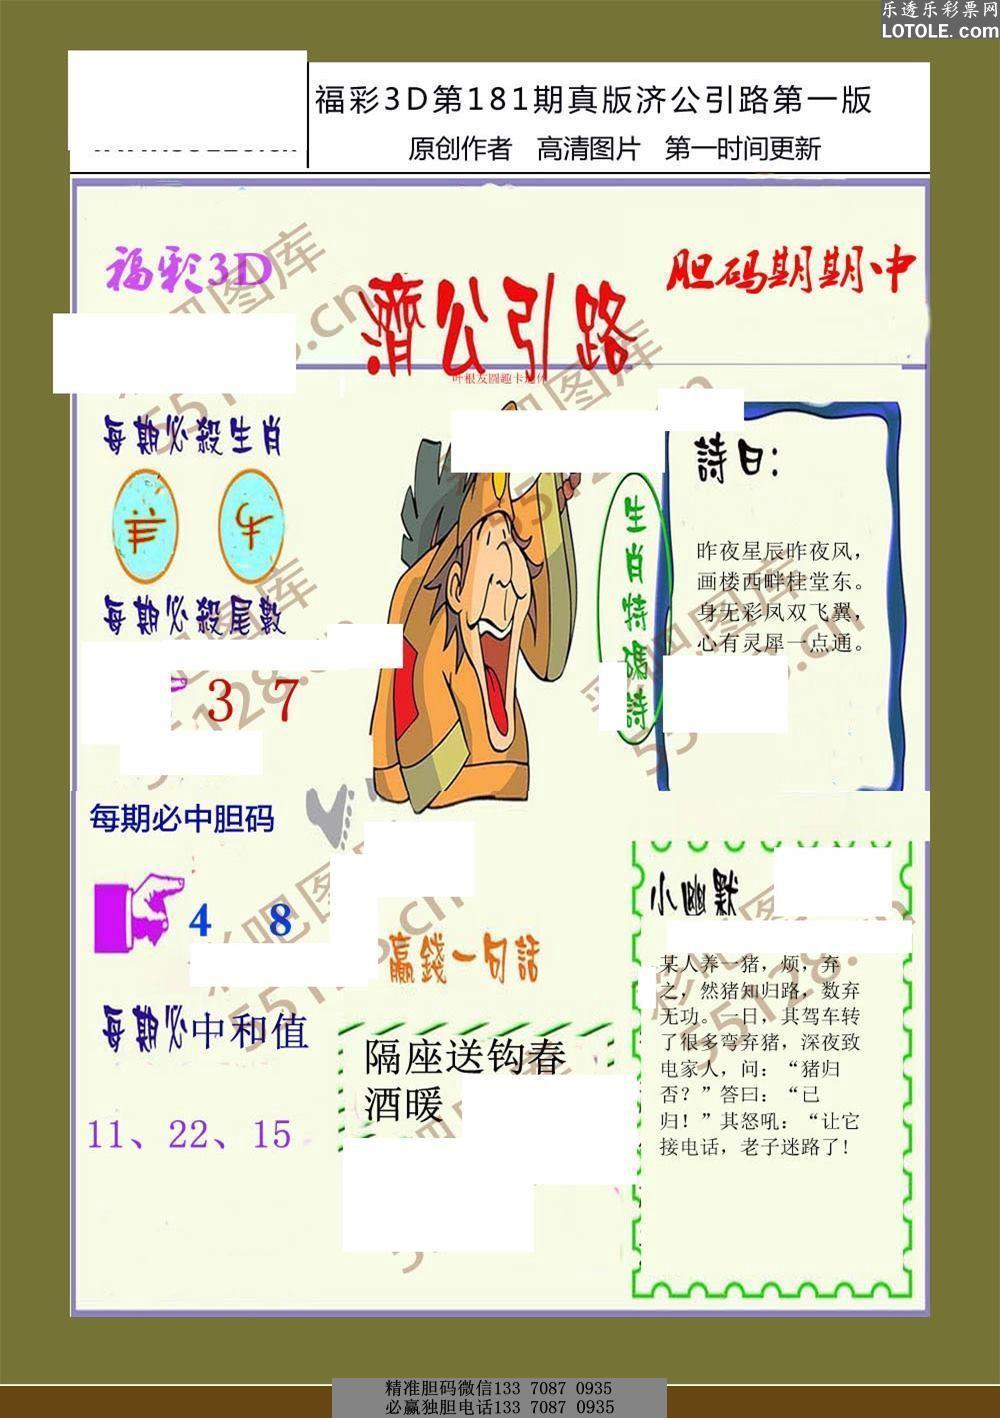 乐透乐彩票网
LOTOLE.com
福彩3D第181期真版济公引路第一版
原创作者 高清图片 第一时间更新
福彩3D
濟公引路
胆码期期中
每期必殺生肖
羊 牛
每期必殺尾數
3 7
每期必中胆码
4 8
每期必中和值
11、22、15
生肖特碼詩
詩曰：
昨夜星辰昨夜风，
画楼西畔桂堂东。
身无彩凤双飞翼，
心有灵犀一点通。
赢錢一句話
隔座送钩春
酒暖
小幽默
某人养一猪，烦，弃
之，然猪知归路，数弃
无功。一日，其驾车转
了很多弯弃猪，深夜致
电家人，问：“猪归
否？”答曰：“已
归！”其怒吼：“让它
接电话，老子迷路了!
彩吧图库
55128.cn
精准胆码微信133 7087 0935
必赢独胆电话133 7087 0935